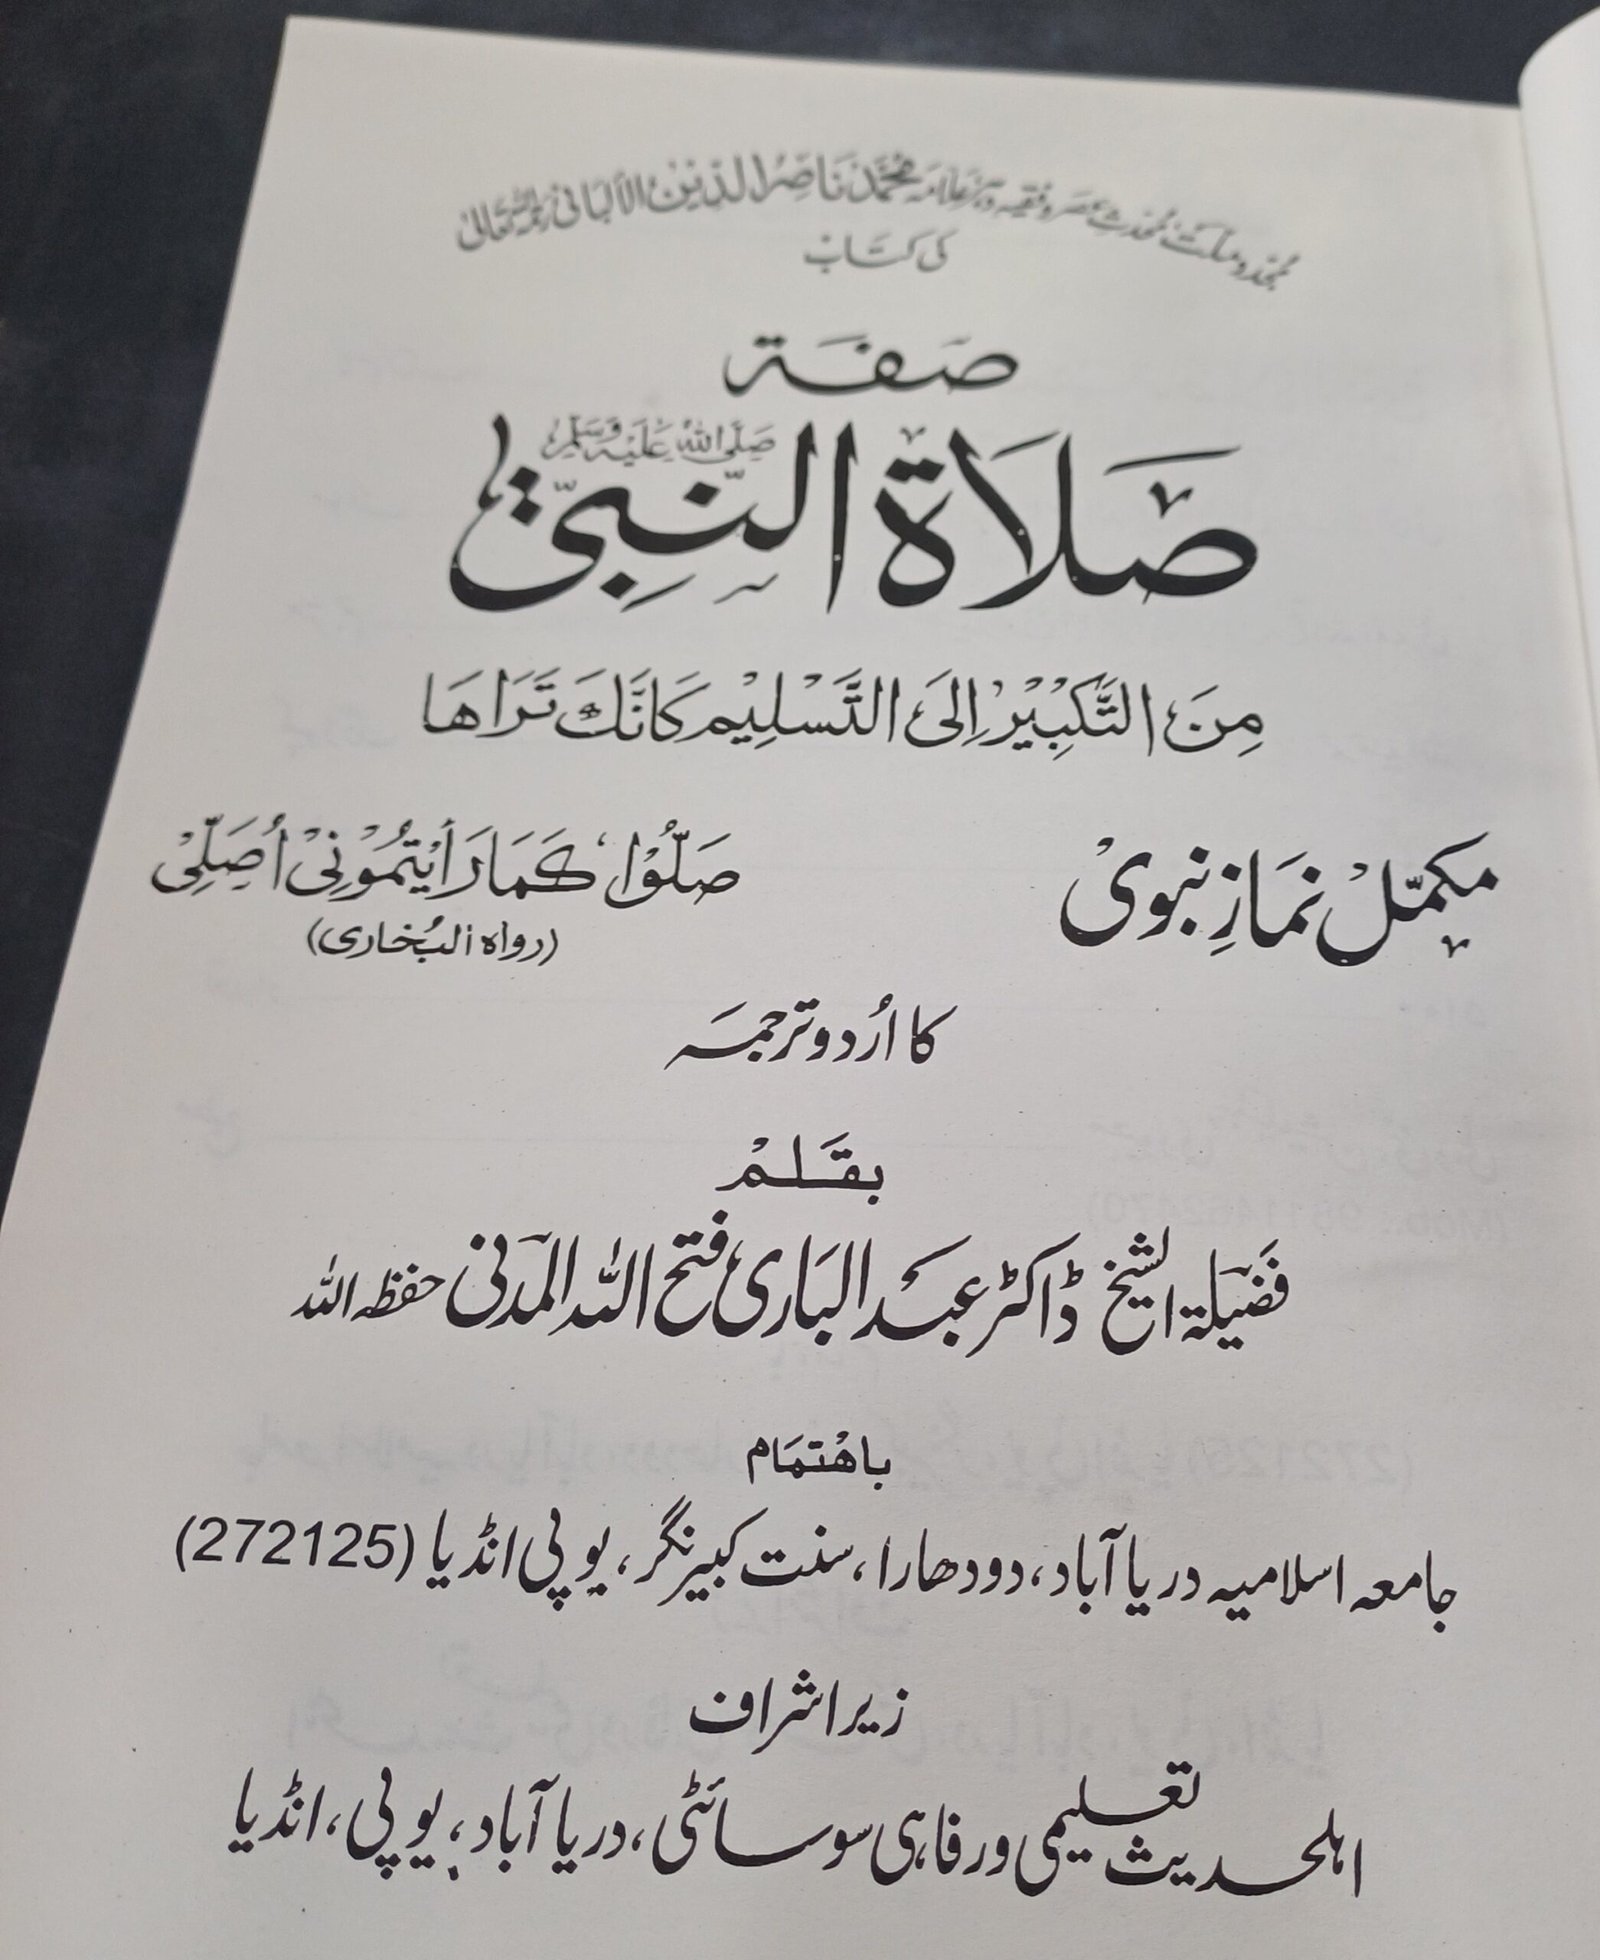 مجدد ملت محدث عصر وفقیہ دہر علامہ محمد ناصر الدین الالبانی رحمہ اللہ تعالیٰ
کی کتاب
صفة
صلاة النبي صلى الله عليه وسلم
من التكبير إلى التسليم كأنك تراها
مکمل نماز نبوی
صَلُّوْا كَمَا رَأَيْتُمُوْنِيْ أُصَلِّيْ
(رواه البُخاری)
کا اُردو ترجمہ
بقلم
فضیلۃ الشیخ ڈاکٹر عبدالباری فتح اللہ المدنی حفظہ اللہ
باهتمام
جامعہ اسلامیہ دریا آباد، دودھارا، سنت کبیر نگر، یو پی انڈیا (272125)
زیر اشراف
اہلحدیث تعلیمی ورفاہی سوسائٹی، دریا آباد، یو پی، انڈیا